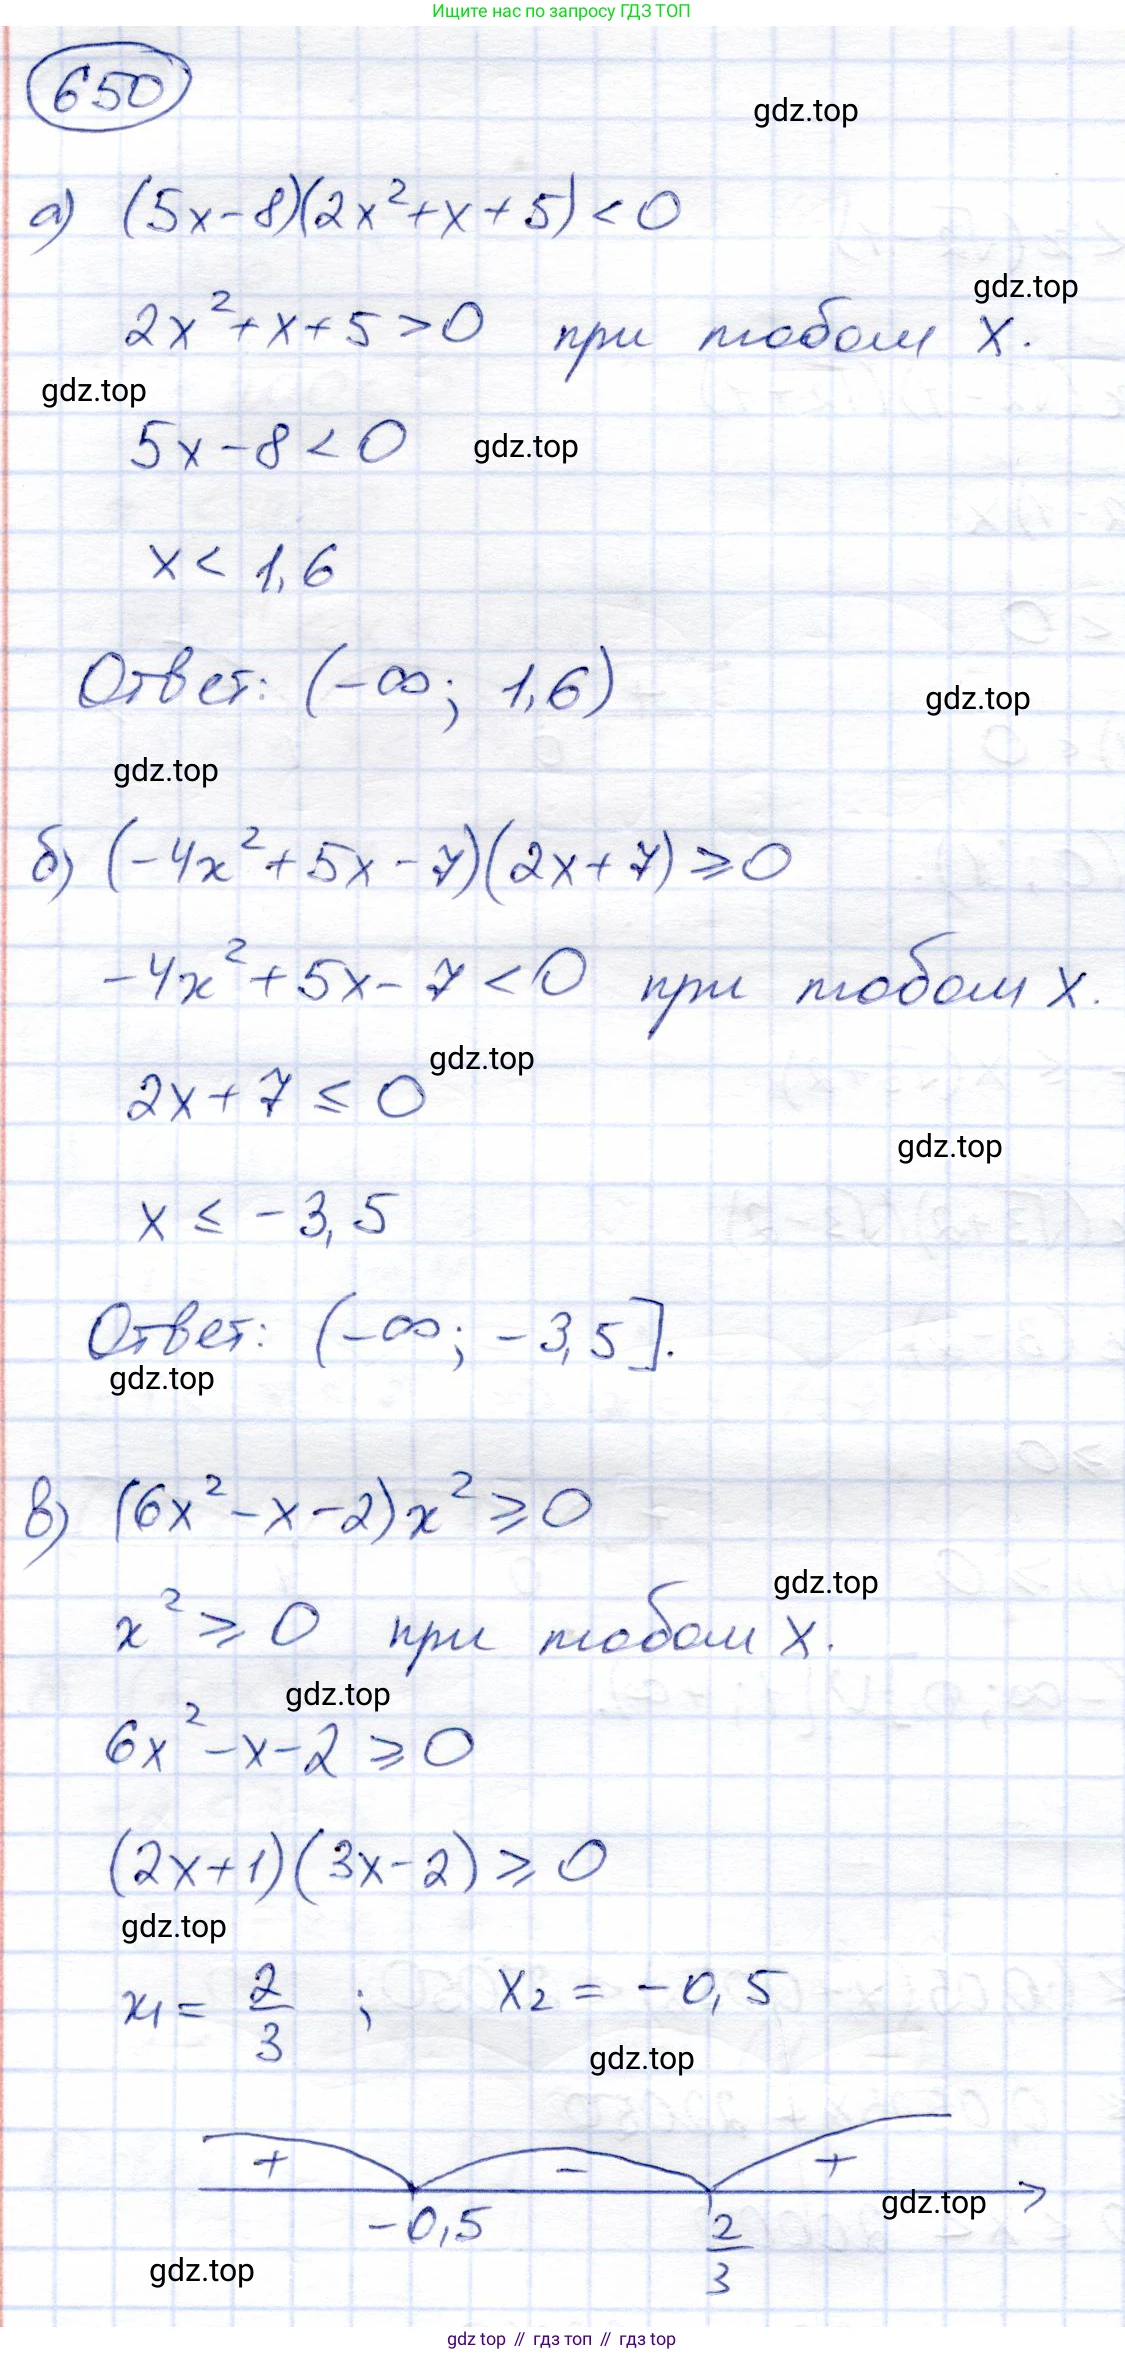 Ищите нас по запросу ГДЗ ТОП
650
gdz.top
а) (5x-8)(2x²+x+5)<0
gdz.top
2x²+x+5>0 при любом x.
gdz.top
5x-8<0 gdz.top
x< 1,6
Ответ: (-∞; 1,6)
gdz.top
gdz.top
б) (-4x²+5x-7)(2x+7)≥0
-4x²+5x-7<0 при любом x.
gdz.top
2x+7≤0
gdz.top
x≤-3,5
Ответ: (-∞; -3,5].
gdz.top
в) (6x²-x-2)x²≥0
gdz.top
x²≥0 при любом x.
gdz.top
6x²-x-2≥0
(2x+1)(3x-2)≥0
gdz.top
x₁= 2/3 ; x₂=-0,5
gdz.top
+ - +
gdz.top
-0,5 2/3
gdz.top
gdz top // гдз топ // гдз top